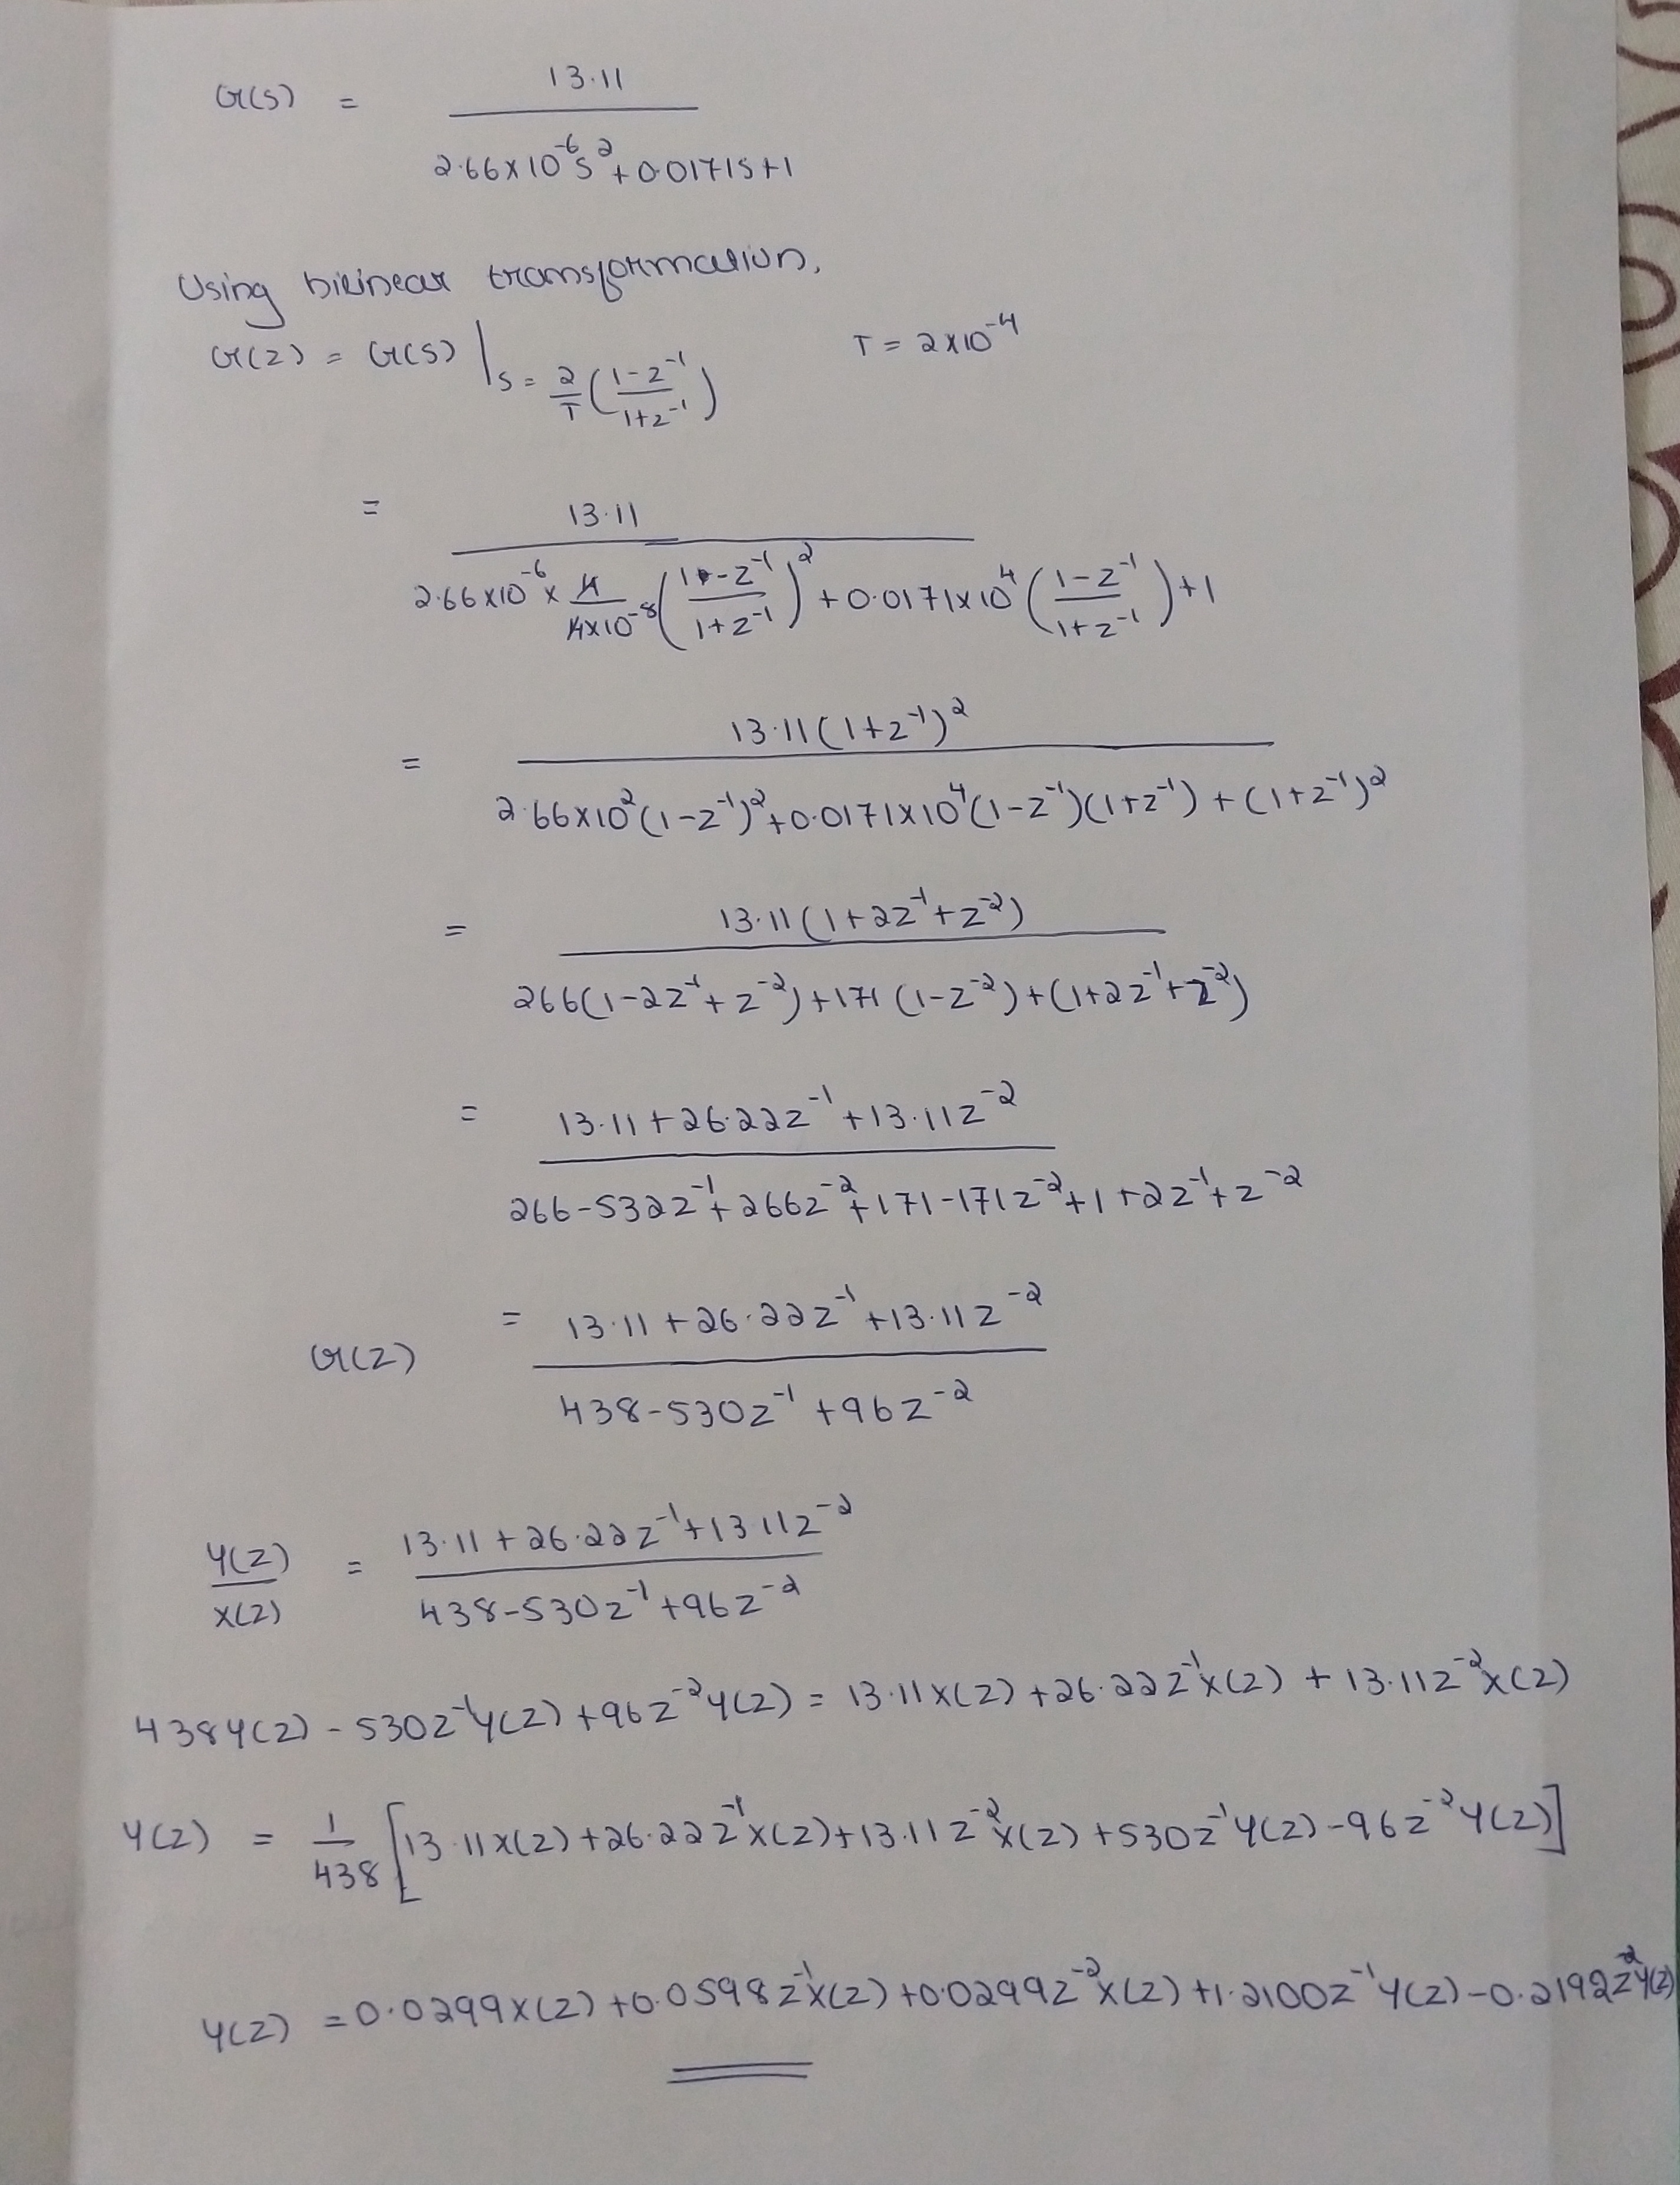 G(s) = 13.11 / (2.66×10^-6 s^2 + 0.0171s+1)
Using bilinear transformation,
G(z) = G(s) |s = 2/T ((1-z^-1)/(1+z^-1)) T = 2×10^-4
= 13.11 / (2.66×10^-6 × 4/(4×10^-8) ((1-z^-1)/(1+z^-1))^2 + 0.0171×10^4 ((1-z^-1)/(1+z^-1)) +1)
= 13.11(1+z^-1)^2 / (2.66×10^2(1-z^-1)^2+0.0171×10^4(1-z^-1)(1+z^-1) + (1+z^-1)^2)
= 13.11(1+2z^-1+z^-2) / (266(1-2z^-1+z^-2)+171(1-z^-2)+(1+2z^-1+z^-2))
= (13.11+26.22z^-1+13.11z^-2) / (266-532z^-1+266z^-2+171-171z^-2+1+2z^-1+z^-2)
G(z) = (13.11+26.22z^-1+13.11z^-2) / (438-530z^-1+96z^-2)
Y(z)/X(z) = (13.11+26.22z^-1+13.11z^-2) / (438-530z^-1+96z^-2)
438Y(z)-530z^-1Y(z)+96z^-2Y(z) = 13.11X(z)+26.22z^-1X(z)+13.11z^-2X(z)
Y(z) = 1/438 [13.11X(z)+26.22z^-1X(z)+13.11z^-2X(z)+530z^-1Y(z)-96z^-2Y(z)]
Y(z) = 0.0299X(z)+0.0598z^-1X(z)+0.0299z^-2X(z)+1.2100z^-1Y(z)-0.2192z^-2Y(z)